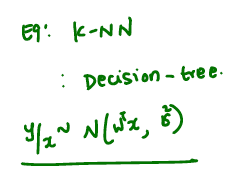 Eg: K-NN
: Decision-tree.
y/x ~ N(wᵀx, σ²)